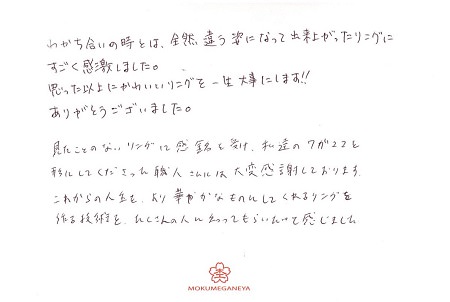 わかち合いの時とは、全然違う姿になって出来上がったリングに
すごく感激しました。
思った以上にかわいいリングを一生大事にします!!
ありがとうございました。
見たことのないリングに感銘を受け、私達のワガママを
形にしてくださった職人さんには大変感謝しております。
これからの人生を、より華やかなものにしてくれるリングを
作る技術を、たくさんの人に知ってもらいたいと感じました
MOKUMEGANEYA